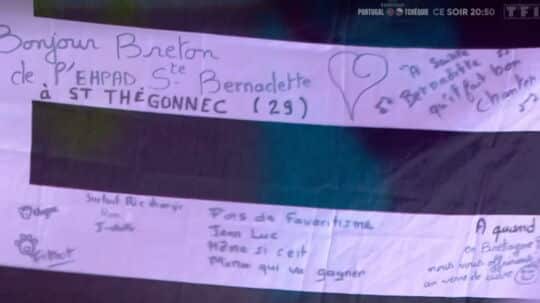 PORTUGAL TCHÉQUIE CE SOIR 20:50 TF1
Bonjour Breton
de l'EHPAD Ste Bernadette
à ST THÉGONNEC (29)
A Sainte
Bernadette
qu'il fait bon
chanter
Surtout Rien changer
Pas de Favoritisme
Jean Luc
Même si c'est
Manon qui va gagner
A quand
en Bretagne ?
nous vous offrirons
un verre de cidre